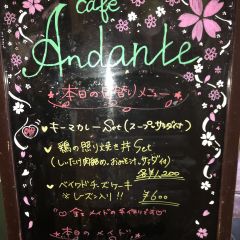 cafe
Andante
本日の日替りメニュー
キーマカレーSet(スープ、サラダ付き)
鶏の照り焼き丼Set
(しいたけ肉詰め、おみそ汁、サラダ付)
各¥1,200
ベイクドチーズケーキ
※レーズン入り!! ¥600
全てメイドの手作りです
本日のメイド